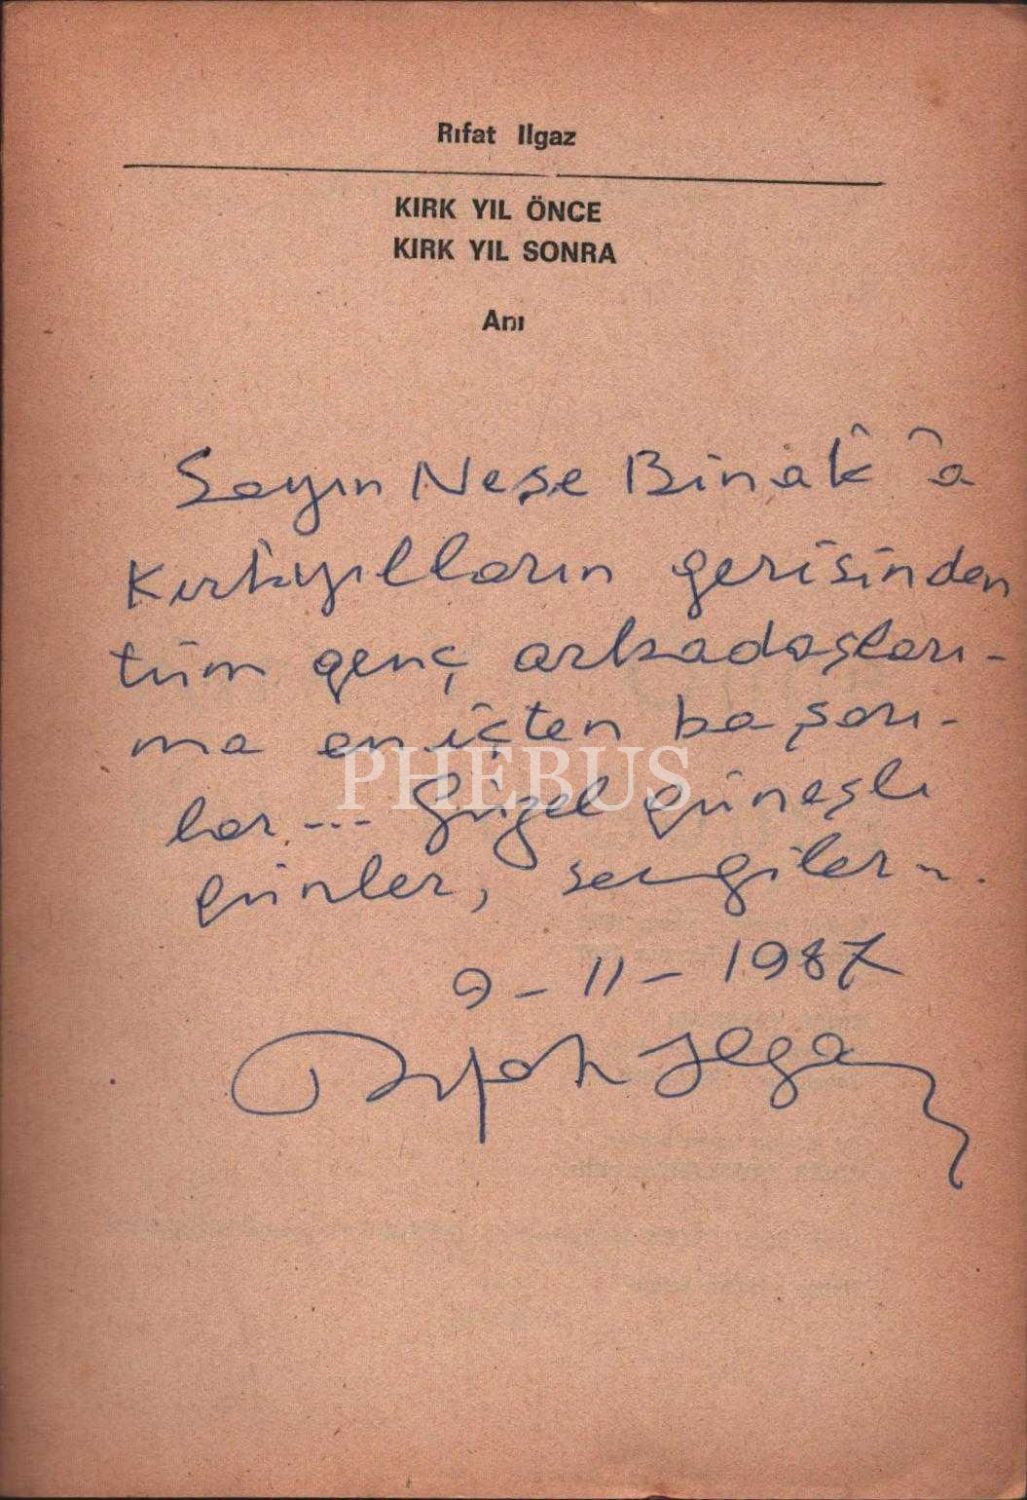 Rıfat Ilgaz
KIRK YIL ÖNCE
KIRK YIL SONRA
Anı
Sayın Neşe Binak'a
Kırkyılların gerisinden
tüm genç arkadaşları-
ma en içten başarı-
lar... Güzel güneşli
günler, sevgiler...
9-11-1987
Rıfat Ilgaz
PHEBUS